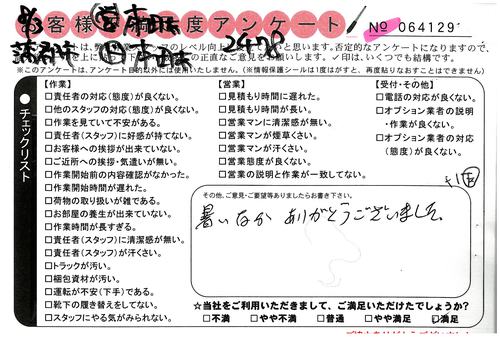 お客様満足度アンケート
No 064129
2478
※このアンケートは、アンケート目的以外には使用いたしません。(※情報保護シールは1度がすと、再度貼りなおすことはできません)
チェックリスト
【作業】
□責任者の対応(態度)が良くない。
□他のスタッフの対応(態度)が良くない。
□作業を見ていて不安がある。
□責任者(スタッフ)に好感が持てない。
□お客様への挨拶が出来ていない。
□ご近所への挨拶・気遣いが無い。
□作業開始前の内容確認がなかった。
□作業開始時間が遅れた。
□荷物の取り扱いが雑である。
□お部屋の養生が出来ていない。
□作業時間が長すぎる。
□責任者(スタッフ)に清潔感が無い。
□責任者(スタッフ)が汗くさい。
□トラックが汚い。
□梱包資材が汚い。
□運転が不安(下手)である。
□靴下の履き替えをしてない。
□スタッフにやる気がみられない。
【営業】
□見積もり時間に遅れた。
□見積もり時間が長い。
□営業マンに清潔感が無い。
□営業マンが煙草くさい。
□営業マンが汗くさい。
□営業態度が良くない。
□営業の説明と作業が一致してない。
【受付・その他】
□電話の対応が良くない。
□オプション業者の説明・作業が良くない。
□オプション業者の対応(態度)が良くない。
その他、ご意見・ご要望等ありましたらお書き下さい。
暑いなか ありがとうございました。
☆当社をご利用いただきまして、ご満足いただけたでしょうか?
□不満 □やや不満 □普通 □やや満足 □満足